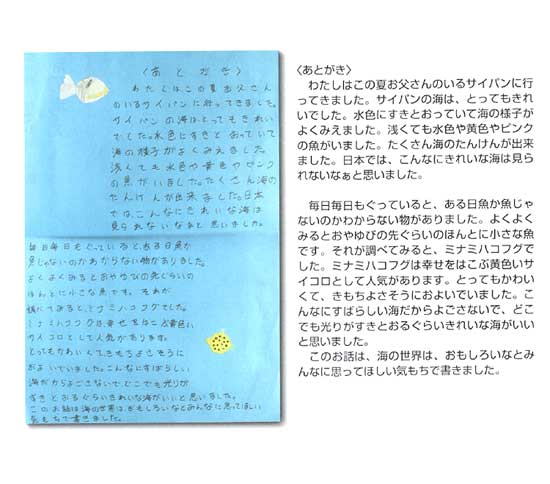 〈あとがき〉
わたしはこの夏お父さん
のいるサイパンに行ってきました。
サイパンの海はとってもきれい
でした。水色にすきとおっていて
海の様子がよくみえました。
浅くても水色や黄色やピンク
の魚がいました。たくさん海の
たんけんが出来ました。日本
では、こんなにきれいな海は
見られないなぁと思いました。
毎日毎日もぐっていると、ある日魚か
魚じゃないのかわからない物がありました。
よくよくみるとおやゆびの先ぐらいの
ほんとに小さな魚です。それが
調べてみると、ミナミハコフグでした。
ミナミハコフグは幸せをはこぶ黄色い
サイコロとして人気があります。
とってもかわいくて、きもちよさそうに
およいでいました。こんなにすばらしい
海だからよごさないで、どこでも光りが
すきとおるぐらいきれいな海がいいと思いました。
このお話は海の世界は、おもしろいなとみんなに思ってほしい
気もちで書きました。
〈あとがき〉
わたしはこの夏お父さんのいるサイパンに行
ってきました。サイパンの海は、とってもきれ
いでした。水色にすきとおっていて海の様子が
よくみえました。浅くても水色や黄色やピンク
の魚がいました。たくさん海のたんけんが出来
ました。日本では、こんなにきれいな海は見ら
れないなぁと思いました。
毎日毎日もぐっていると、ある日魚か魚じゃ
ないのかわからない物がありました。よくよく
みるとおやゆびの先ぐらいのほんとに小さな魚
です。それが調べてみると、ミナミハコフグで
した。ミナミハコフグは幸せをはこぶ黄色いサ
イコロとして人気があります。とってもかわい
くて、きもちよさそうにおよいでいました。こ
んなにすばらしい海だからよごさないで、どこ
でも光りがすきとおるぐらいきれいな海がいい
と思いました。
このお話は、海の世界は、おもしろいなとみ
んなに思ってほしい気もちで書きました。